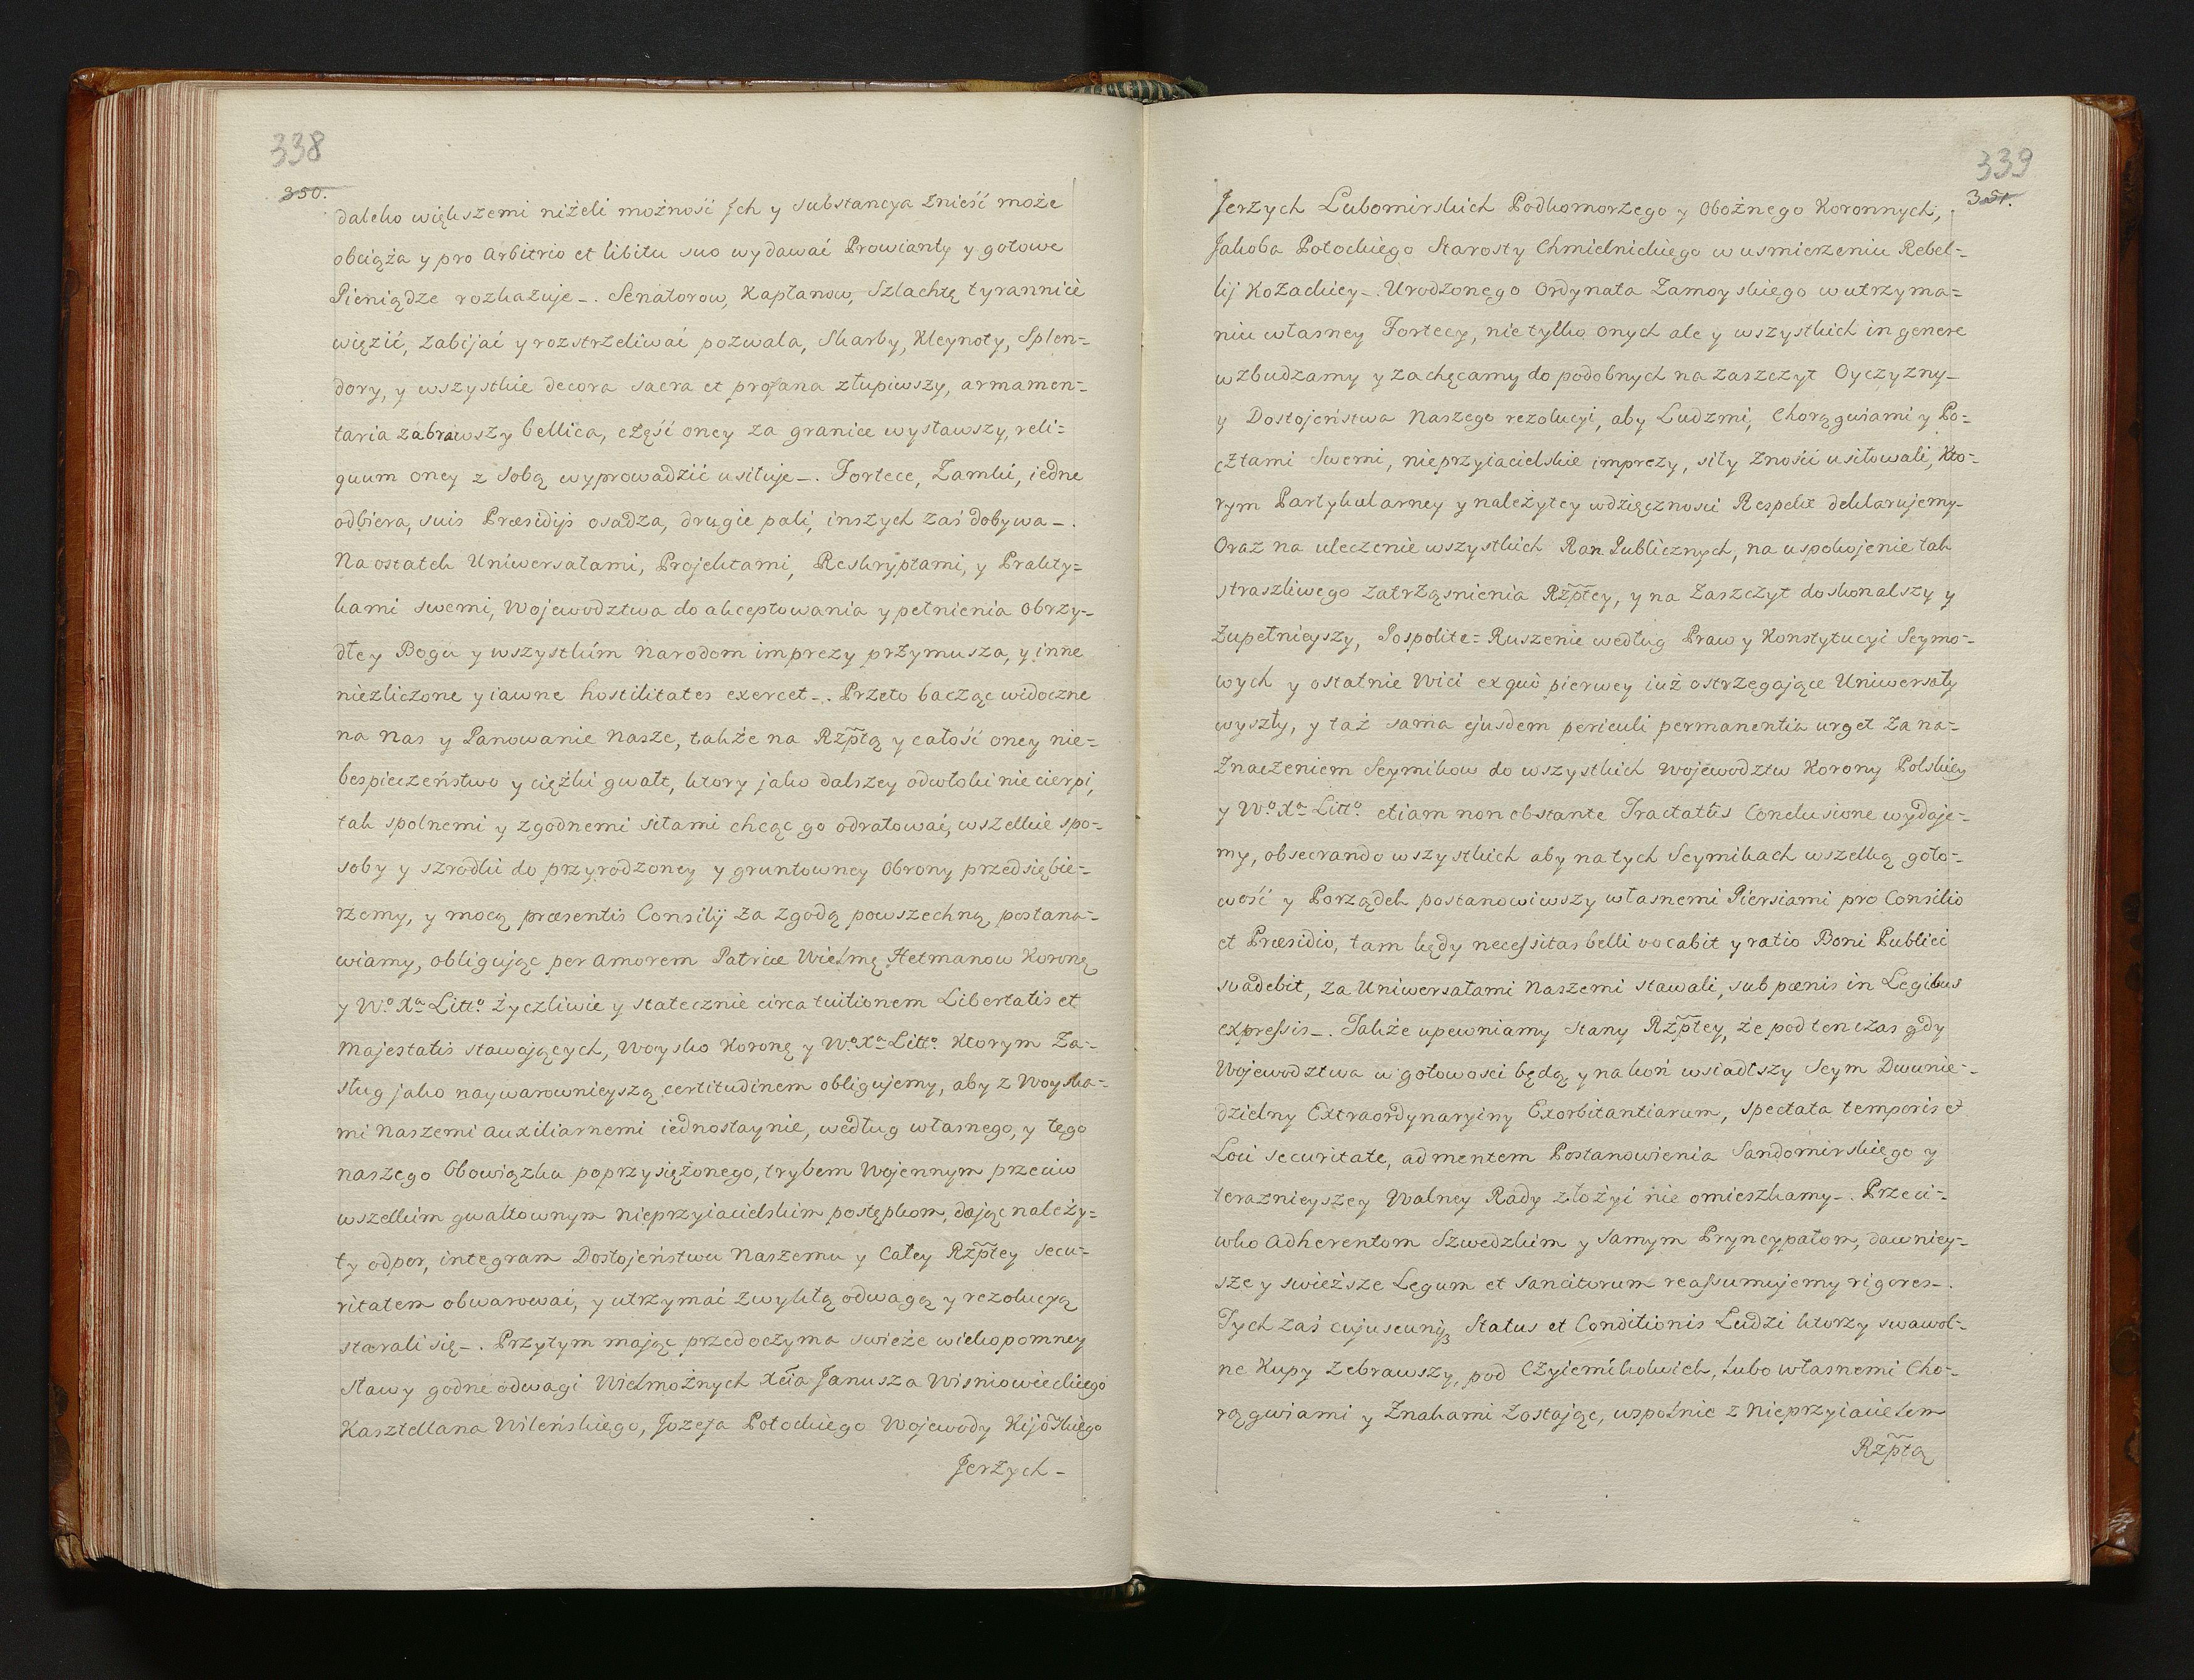 338
350.
daleko większemi niżeli możność Jch y substancya znieść może
obciąża y pro arbitrio et libitu suo wydawać Prowianty y gotowe
Pieniądze rozkazuje_. Senatorow, Kapłanow, Szlachtę tyrannicè
więzić, zabijać y rozstrzeliwać pozwala, Skarby, Kleynoty, Splen=
dory, y wszystkie decora sacra et profana złupiwszy, armamen=
taria zabrawszy bellica, część oney za granice wysławszy, reli=
quum oney z sobą wyprowadzić usiłuje_. Fortece, Zamki, iedne
odbiera, suis Præsidijs osadza, drugie pali, inszych zaś dobywa_.
Na ostatek Uniwersałami, Projektami, Reskryptami, y Prakty=
kami swemi, Wojewodztwa do akceptowania y pełnienia obrzy=
dłey Bogu y wszystkim Narodom imprezy przymusza, y inne
niezliczone y iawne hostilitates exercet_. Przeto bacząc widoczne
na nas y Panowanie Nasze, także na Rzptą y całość oney nie=
bespieczeństwo y ciężki gwałt, ktory jako dalszey odwłoki nie cierpi,
tak spolnemi y zgodnemi siłami chcąc go odratować, wszelkie spo=
soby y szrodki do przyrodzoney y gruntowney obrony przedsiębie=
rzemy, y mocą præsentis Consilij za zgodą powszechną postana=
wiamy, obligując per amorem Patriæ Wielmę Hetmanow Koronę
y Wo. Xa Litto. życzliwie y statecznie circa tuitionem Libertatis et
Majestatis stawających, Woysko Koronę y Wo. Xa Litto. Ktorym Za=
sług jako naywarownieyszą certitudinem obligujemy, aby z Woyska=
mi Naszemi auxiliarnemi iednostaynie, według własnego, y tego
naszego Obowiązku poprzysiężonego, trybem Wojennym przeciw
wszelkim gwałtownym nieprzyiacielskim postępkom, dając należy=
ty odpor, integram Dostojeństwu Naszemu y Całey Rzptey secu=
ritatem obwarować, y utrzymać zwykłą odwagą y rezolucyą
starali się_. Przytym mając przed oczyma swieże wiekopomney
sławy godne odwagi Wielmożnych Xcia Janusza Wisniowieckiego
Kasztellana Wileńskiego, Jozefa Potockiego Wojewody Kijoskiego
Jerzych_
339
351.
Jerzych Lubomirskich Podkomorzego y Obożnego Koronnych,
Jakoba Potockiego Starosty Chmielnickiego w usmierzeniu Rebel=
lij Kozackiey_. Urodzonego Ordynata Zamoyskiego w utrzyma=
niu własney Fortecy, nie tylko onych ale y wszystkich in genere
wzbudzamy y zachęcamy do podobnych na zaszczyt Oyczyzny_
y Dostojeństwa Naszego rezolucyi, aby Ludzmi, Chorągwiami y Po=
cztami Swemi, nieprzyiacielskie imprezy, siły znośić usiłowali, Kto=
rym Partykularney y należytey wdzięcznosci Respekt deklarujemy_
Oraz na uleczenie wszystkich Ran Publicznych, na uspokojenie tak
straszliwego zatrząsnienia Rzptey, y na Zaszczyt doskonalszy y
Zupełnieyszy, Pospolite=Ruszenie według Praw y Konstytucyi Seymo=
wych y ostatnie Wici ex quò pierwey iuż ostrzegające Uniwersały
wyszły, y taż sama ejusdem periculi permanentia urget za na=
znaczeniem Seymikow do wszystkich Wojewodztw Korony Polskiey
y Wo. Xa Litto. etiam non obstante Tractatûs Conclusione wydaje=
my, obsecrando wszystkich aby na tych Seymikach wszelką goto=
wość y Porządek postanowiwszy własnemi Piersiami pro Consilio
et Præsidio, tam kędy necessitas belli vocabit y ratio Boni Publici
svadebit, za Uniwersałami Naszemi stawali, sub pænis in Legibus
expressis_. Także upewniamy Stany Rzptey, że pod ten czas gdy
Wojewodztwa w gotowosci będą y na koń wsiadłszy Seym Dwunie=
dzielny Extraordynaryiny Exorbitantiarum, spectata temporis et
Loci securitate, ad mentem Postanowienia Sandomirskiego y
teraznieyszey Walney Rady złożyć nie omieszkamy_. Przeci=
wko Adherentom Szwedzkim y samym Pryncypałom, dawniey=
sze y swieższe Legum et Sancitorum reassumujemy rigores_.
Tych zaś cujuscunq3 Status et Conditionis Ludzi ktorzy swawol=
ne Kupy Zebrawszy, pod Czyiemikolwiek, lubo własnemi Cho=
rągwiami y Znakami Zostając, wspolnie z Nieprzyiacielem
Rzptą